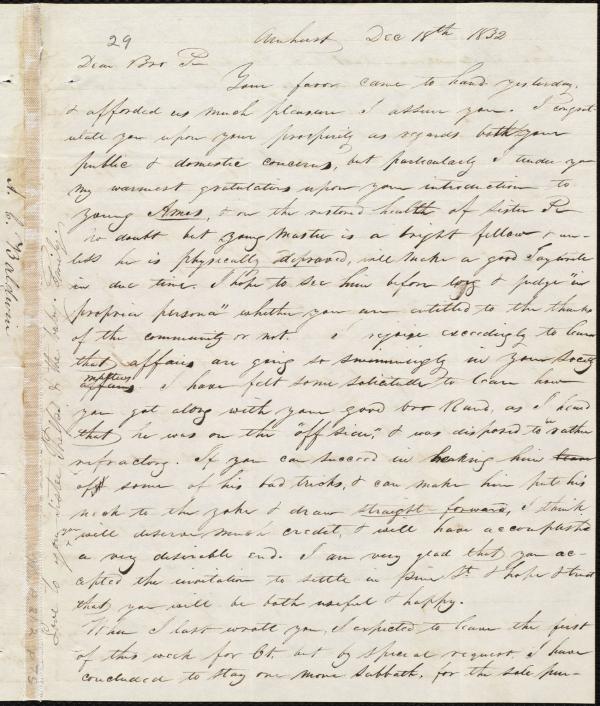 29
Amherst Dec 18th 1832
Dear Bro P
Your favor came to hand yesterday,
& afforded us much pleasure I assure you. I congrat
ulate you upon your prosperity as regards both your
public & domestic concerns, but particularly I tender you
my warmest gratulations upon your introduction to
young Amos, & on the restored health of Sister P
No doubt but young Master is a bright fellow & un-
less he is physically depraved, will make a good
in due time. I hope to see him before long & judge "in
propria persona" whether you are entitled to the thanks
of the community or not. I rejoice exceedingly to learn
that affairs are going so swimmingly in your society
matters. I have felt some solicitude to learn how
you got along with your good bro Rand, as I heard
that he was on the "off side", & was disposed to "rather
refractory. If you can succeed in breaking him
off some of his bad tricks, & can make him put his
neck to the yoke & draw straight forward, I think
you will deserve much credit, & will have accomplished
a very desirable end. I am very glad that you ac-
cepted the invitation to settle in Pine St. & hope & trust
that you will be both useful & happy.
When I last wrote you, I expected to leave the first
of this week for Ct. but by special request I have
concluded to stay one more Sabbath, for the sole pur-
Love to you Sister Phelps & the baby. Finally.
A. C. Baldwin